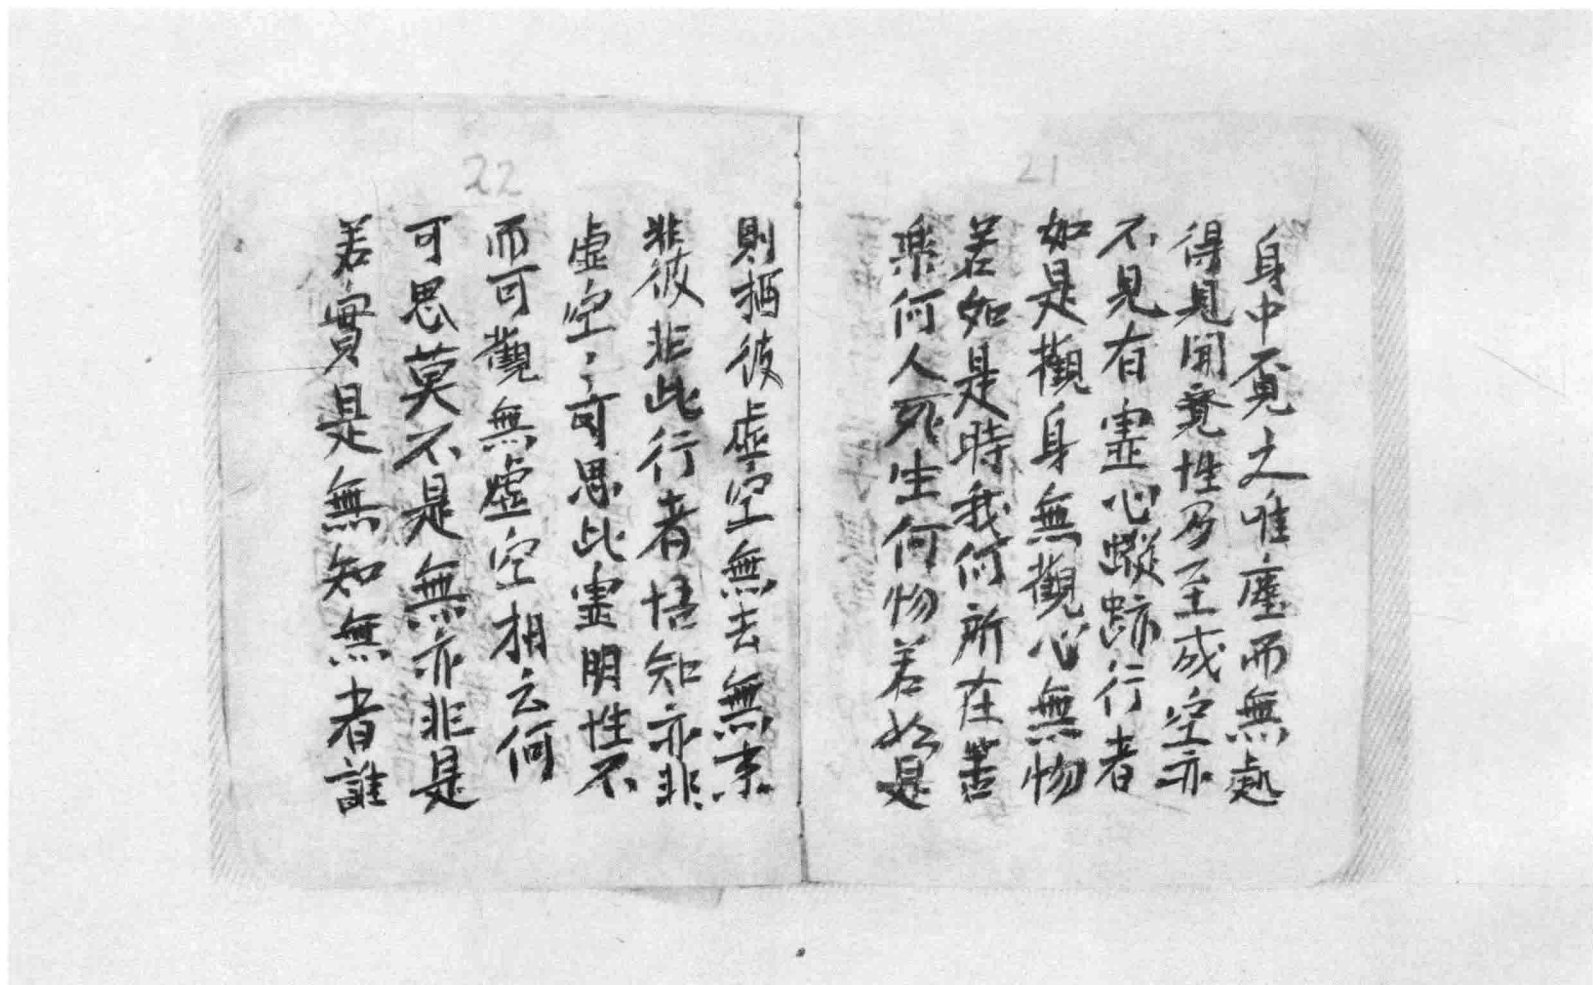 21
身中覔之唯塵而無處
得見聞竟性乃至成空亦
不見有霊心蹤跡行者
如是觀身無觀心無物
若如是時我何所在苦
樂何人死生何物若如是
22
則猶彼虛空無去無来
非彼非此行者悟知亦非
虛空〻可思此霊明性不
而可觀無虛空相云何
可思莫不是無亦非是
若實是無知無者誰